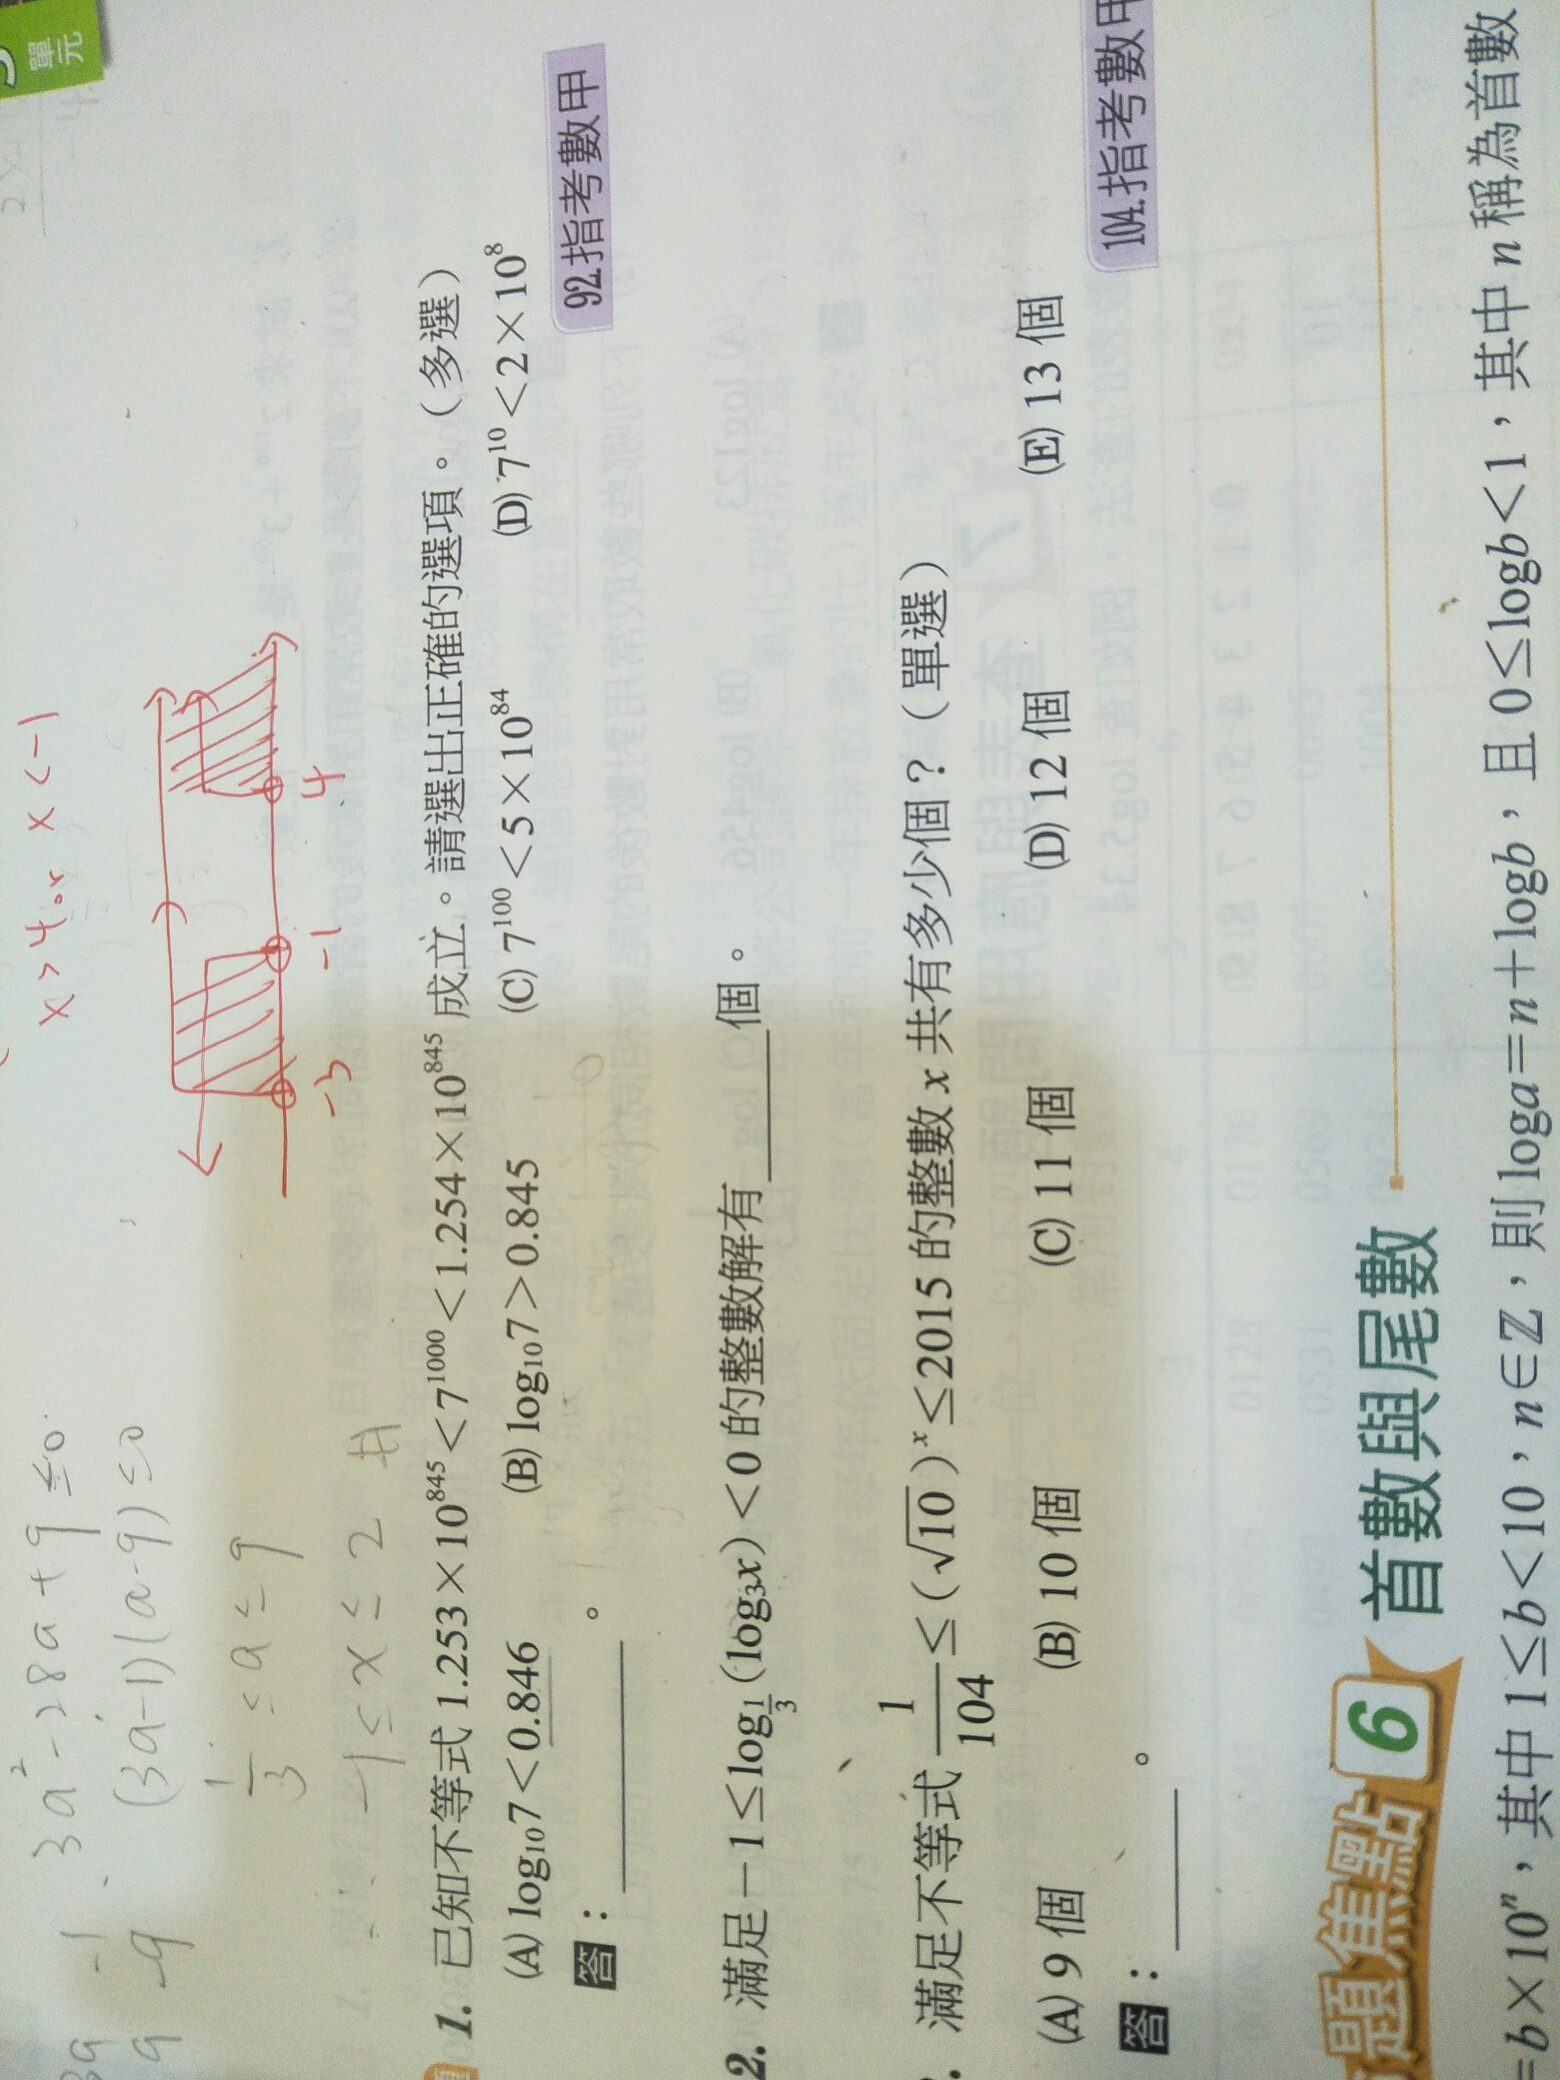 單元
3a² - 28a + 9 ≤ 0
(3a-1)(a-9) ≤ 0
1/3 ≤ a ≤ 9
-1 ≤ x ≤ 2 #
-1
9 -9
x > 4 or x < -1
-3 -1 4
1. 已知不等式 1.253×10⁸⁴⁵<7¹⁰⁰⁰<1.254×10⁸⁴⁵ 成立。請選出正確的選項。(多選)
(A) log₁₀7<0.846 (B) log₁₀7>0.845 (C) 7¹⁰⁰<5×10⁸⁴ (D) 7¹⁰<2×10⁸
答:______。 92.指考數甲
2. 滿足-1≤log_{1/3}(log₃x)<0的整數解有______個。
滿足不等式 1/104≤(√10)ˣ≤2015 的整數 x 共有多少個?(單選)
(A) 9 個 (B) 10 個 (C) 11 個 (D) 12 個 (E) 13 個
答:______。 104.指考數甲
題焦點 6 首數與尾數
=b×10ⁿ,其中 1≤b<10,n∈ℤ,則 loga=n+logb,且 0≤logb<1,其中 n 稱為首數